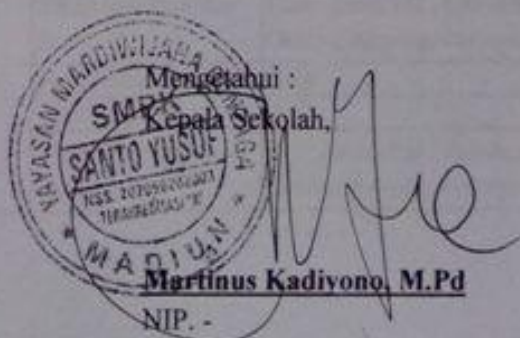 Mengetahui :
Kepala Sekolah,
YAYASAN MARDIWIJANA
SMPK
SANTO YUSUF
NSS.
TERAKREDITASI "A"
* MADIUN *
Martinus Kadiyono, M.Pd
NIP. -